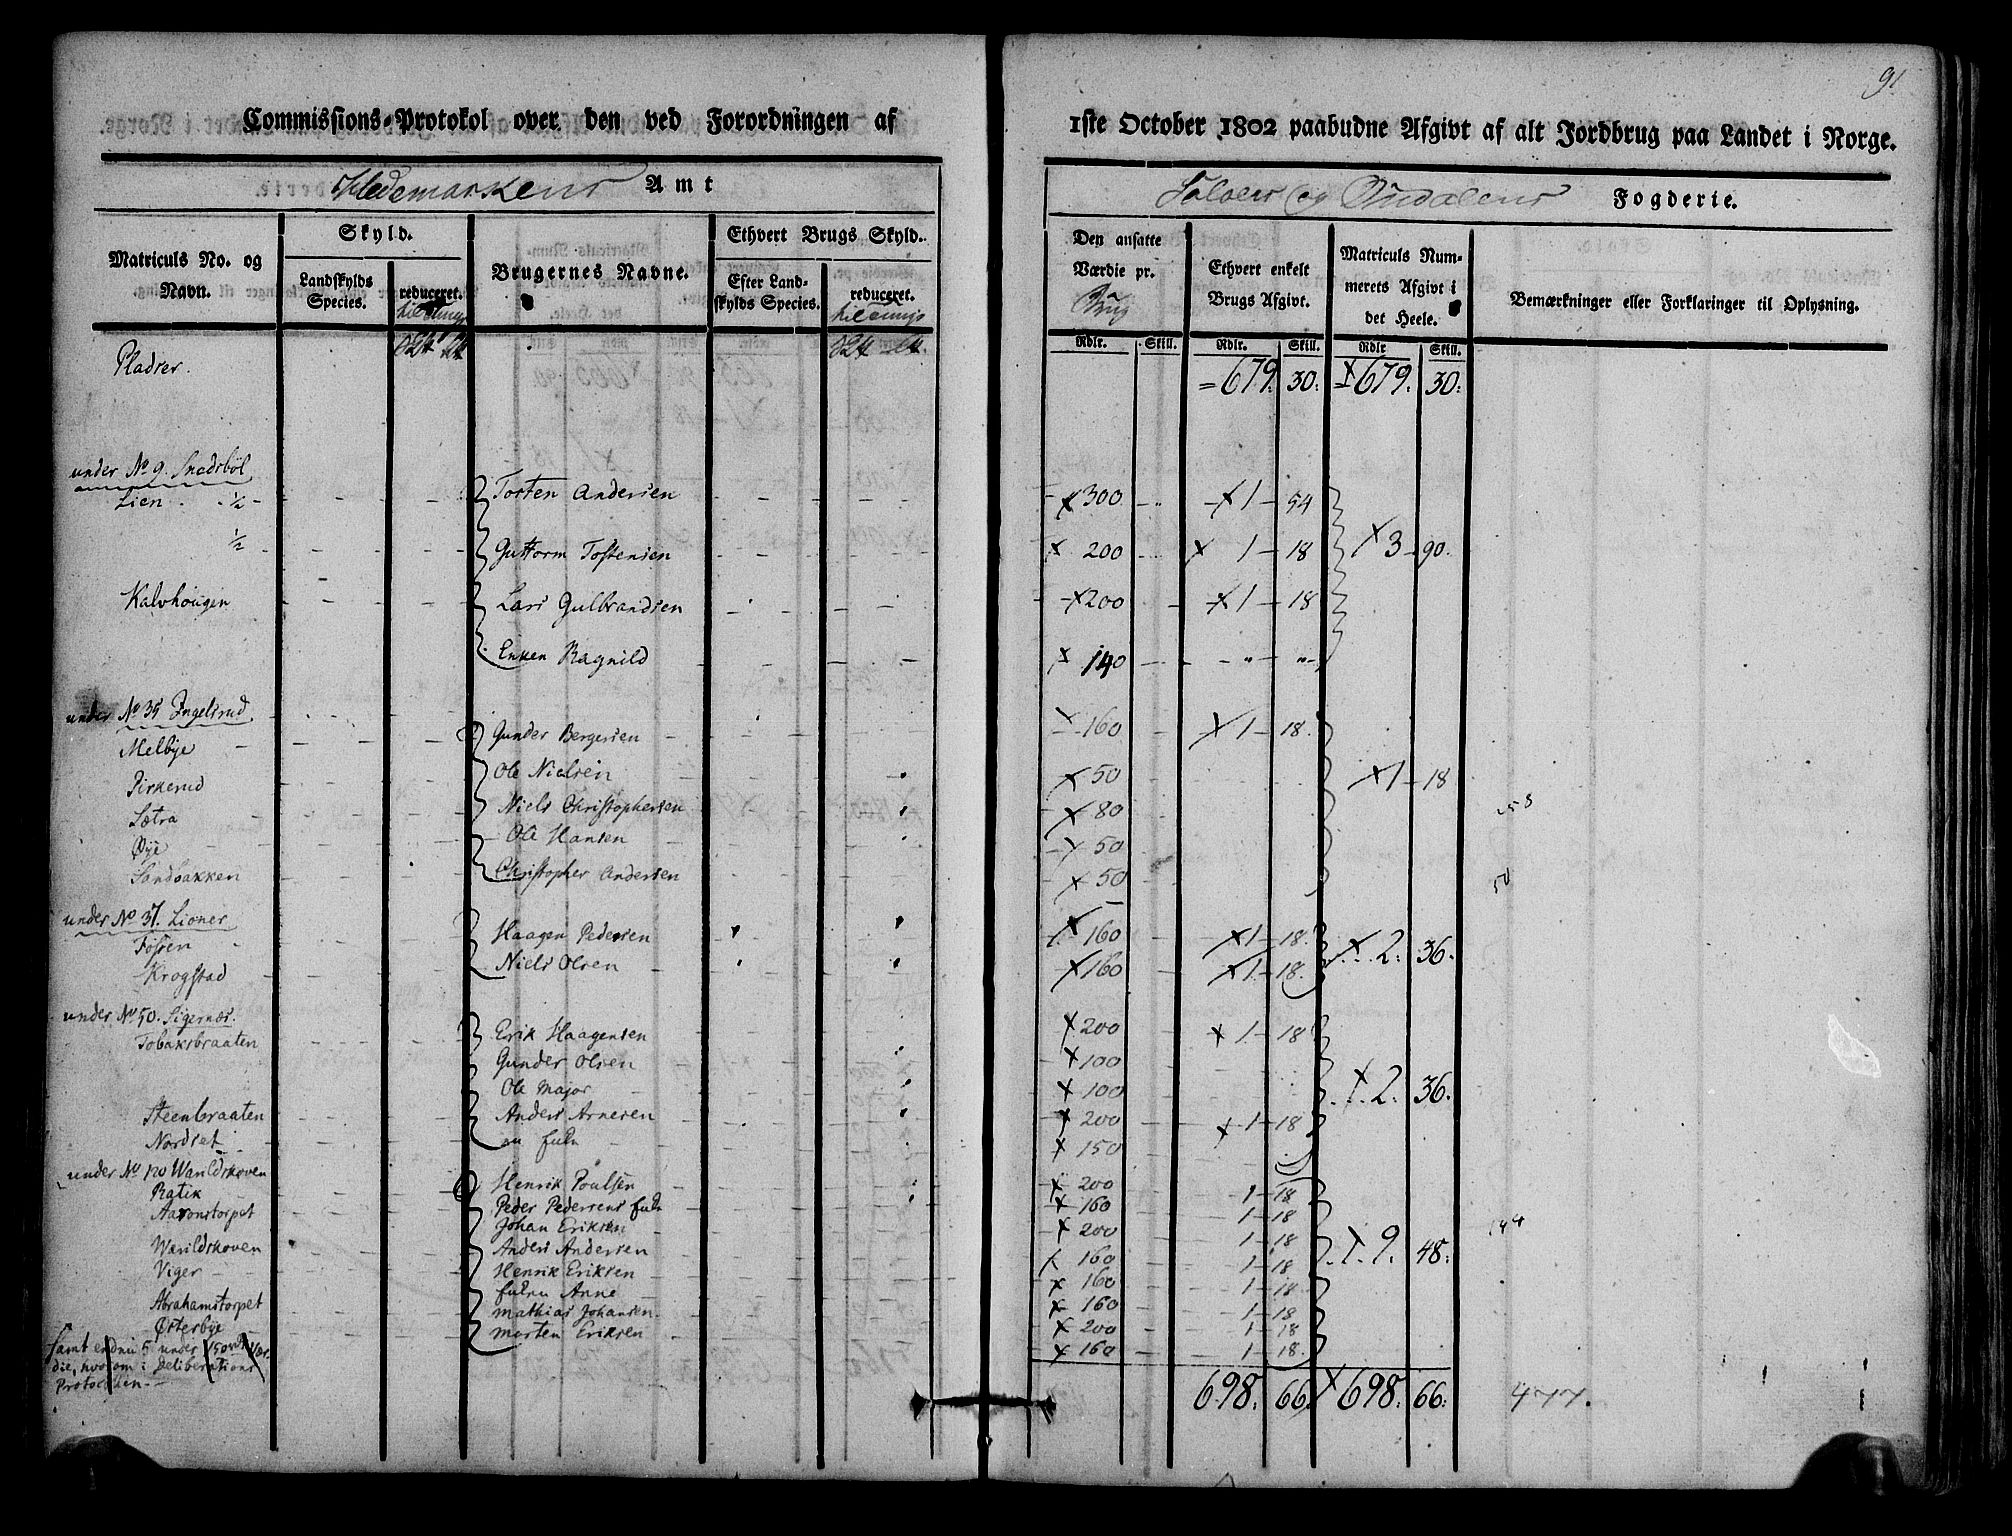 91
Commissions-Protokol over den ved Forordningen af
1ste October 1802 paabudne Afgivt af alt Jordbrug paa Landet i Norge.
Hedemarkens Amt
Soloer og Oudalens Fogderie.
Matriculs No. og Navn.
Skyld.
Landskylds Species.
reduceret.
Brugernes Navne.
Ethvert Brugs Skyld.
Efter Landskylds Species.
reduceret.
Den ansatte Værdie pr. Brug
Ethvert enkelt Brugs Afgivt.
Matriculs Nummerets Afgivt i det Heele.
Bemærkninger eller Forklaringer til Oplysning.
Rdlr. Skill. Rdlr. Skill. Rdlr Skill.
Pladser. 679. 30: 679. 30:
under No 9. Snadsböl
Lien 1/2 Torsten Andersen 300 1 54
1/2 Guttorm Tostensen 200 1 18 3 90.
Kalvhougen Lars Gulbrandsen 200 1 18
Enken Ragnild 140 " "
under No 35 Ingelsrud
Melbye Gunder Bergersen 160 1 18. 1 18
Pirkerud Ole Nielsen 50
Sætra Niels Christophersen 80
Øye Ole Hansen 50
Sandbakken Christopher Andersen 50
under No 37. Lioner
Fossen Haagen Pedersen 160 1 18. 2. 36.
Krogstad Niels Olsen 160 1 18.
under No 50. Sigernæs.
Tobaksbraaten Erik Haagensen 200 1 18
Gunder Olsen 100
Ole Major 100 2. 36.
Steenbraaten Anders Arnesen 200 1 18
Nordset 150
under No 120 Warildskoven
Ratik Henrik Poulsen 200 1 18
Aaronstorpet Peder Pedersens 160 1 18
Johan Eriksen 200 1 18
Warildskoven Anders Andersen 160 1 18 9. 48:
Viger Henrik Eriksen 160 1 18
Anne 160 1 18
Abrahamstorpet Mathias Johansen 200 1 18
Østerbye Morten Eriksen 160 1 18.
Samt endnu 5 under 150 rd Værdie, hvorom i Deliberations Protocollen
698. 66. 698. 66: 477.